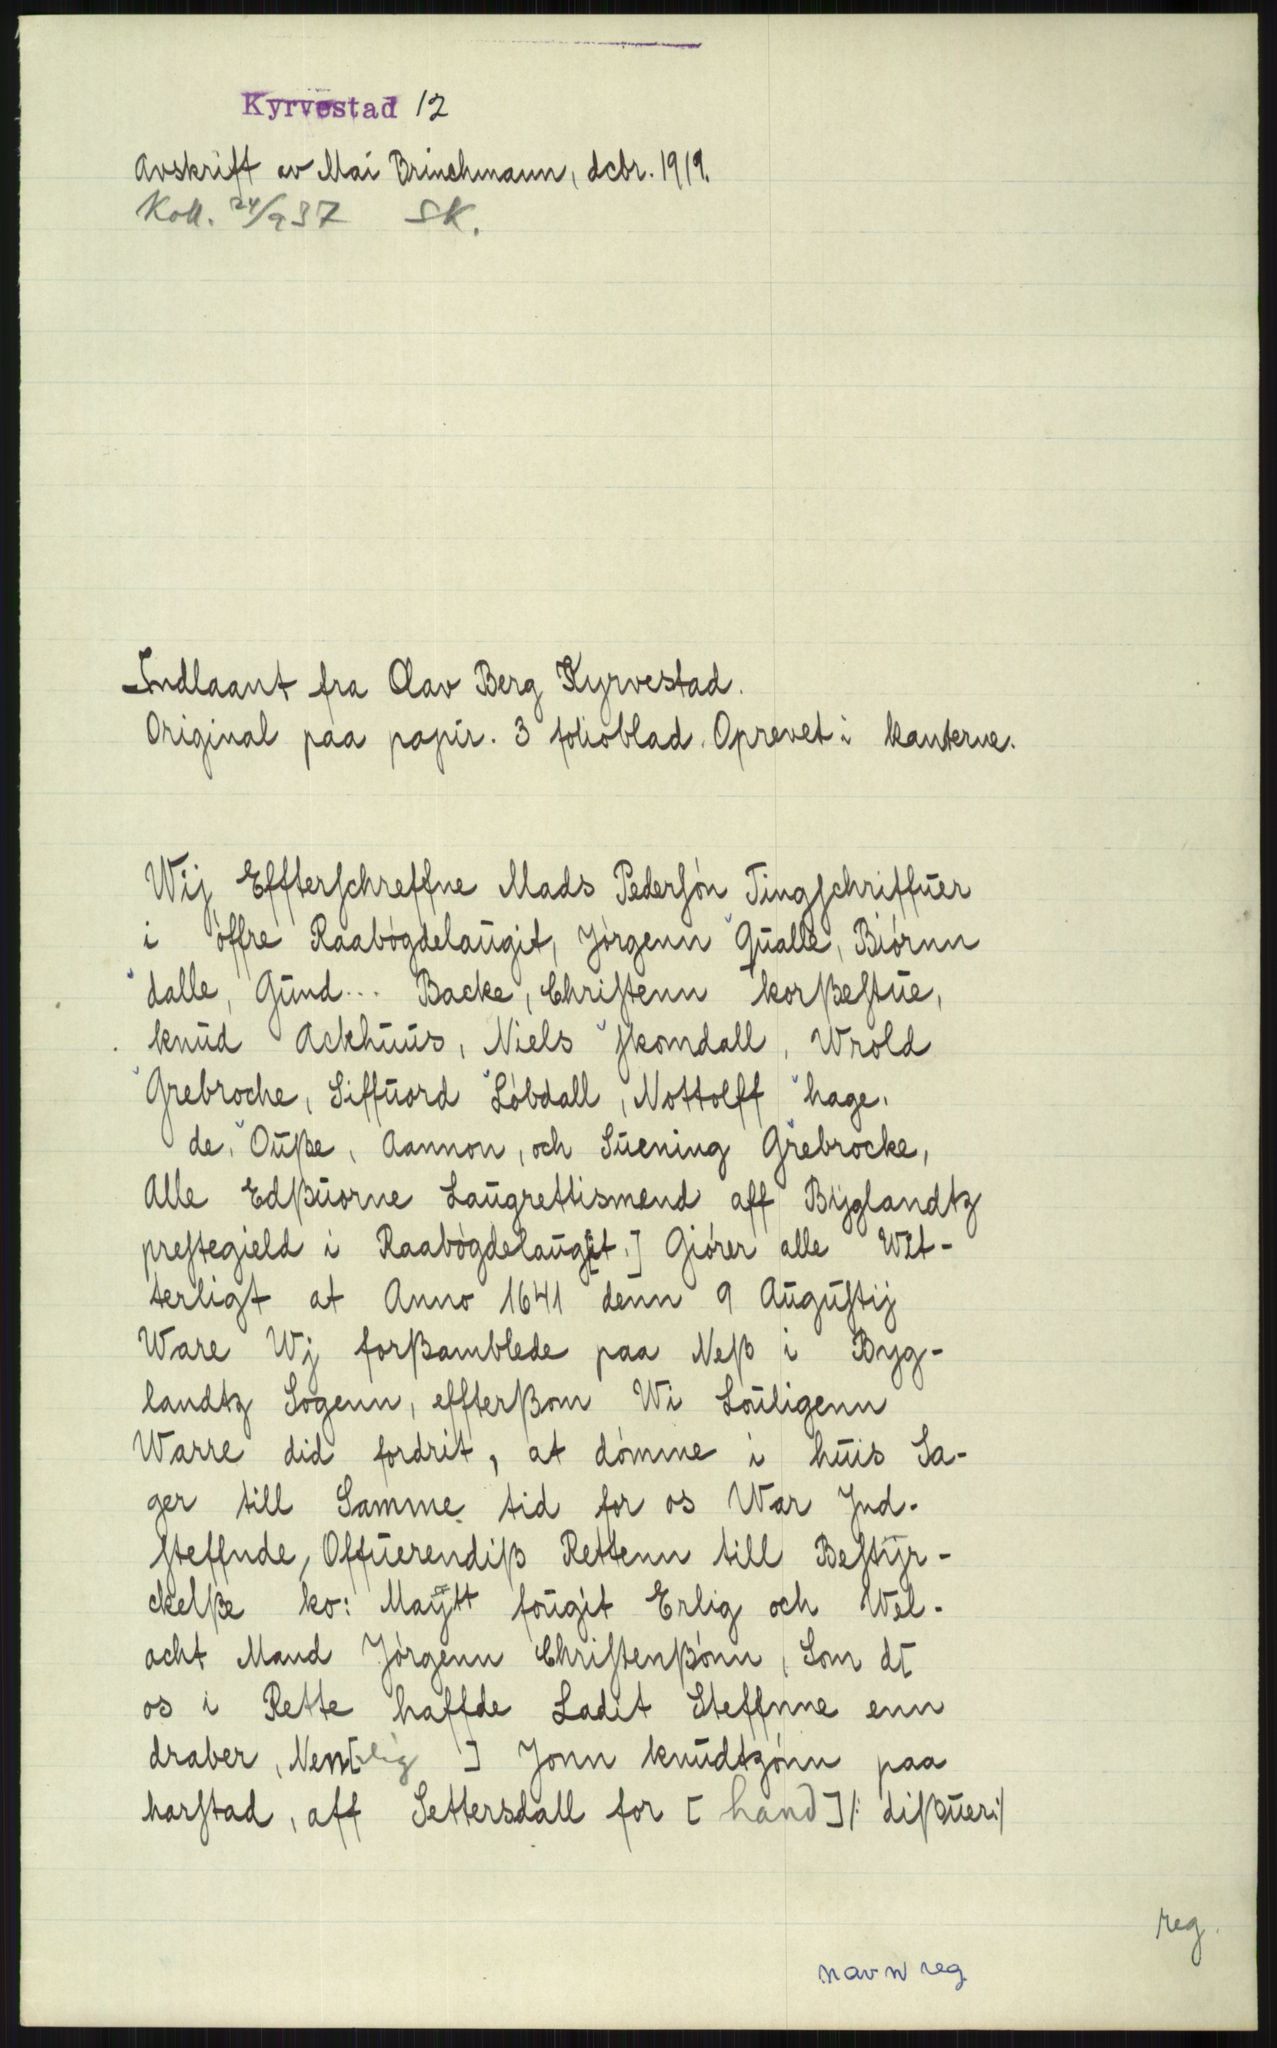 Kyrvestad 12
Avskrift av Mai Brinchmann, dcbr. 1919.
Koll. 24/9 37 SK.
Indlaant fra Olav Berg Kyrvestad.
Original paa papir. 3 folioblad. Oprevet i kanterne.
Wij Effterſchreffne Mads Pederſón Tingſchriffuer
i óffre Raabógdelaugit, Jórgenn Qualle, Biórnn
dalle, Gund... Backe, Chriſtenn korßeſtue,
knud Ackhuus, Niels ſkomdall, Wrold
Grebroche, Siffuord Lóbdall, Nottolff hage.
de, Ouße, Aannon, och Suening Grebrocke,
Alle Edßuorne Laugrettismend aff Býglandtz
preſtegield i Raabógdelaug[it.] Giórer alle Wit-
terligt at Anno 1641 denn 9 Auguſtij
Ware Wj forßamblede paa Neß i Byg-
landtz Sogenn, effterßom Wi Louligenn
Warre did fordrit, at dómme i huis Sa-
ger till Samme tid for os War Jnd-
ſteffnde, Offuerendiß Rettenn till Beſtýr-
ckelße ko: Maýtt fougit Erlig och Wel-
acht Mand Jórgenn Chriſtenßónn, Som d[
os i Rette haffde Ladit Steffnne enn
draber, Nem[lig ] Jonn knudtzónn paa
harſtad, aff Settersdall for [ hand] /: dißuer:/
reg.
navn reg